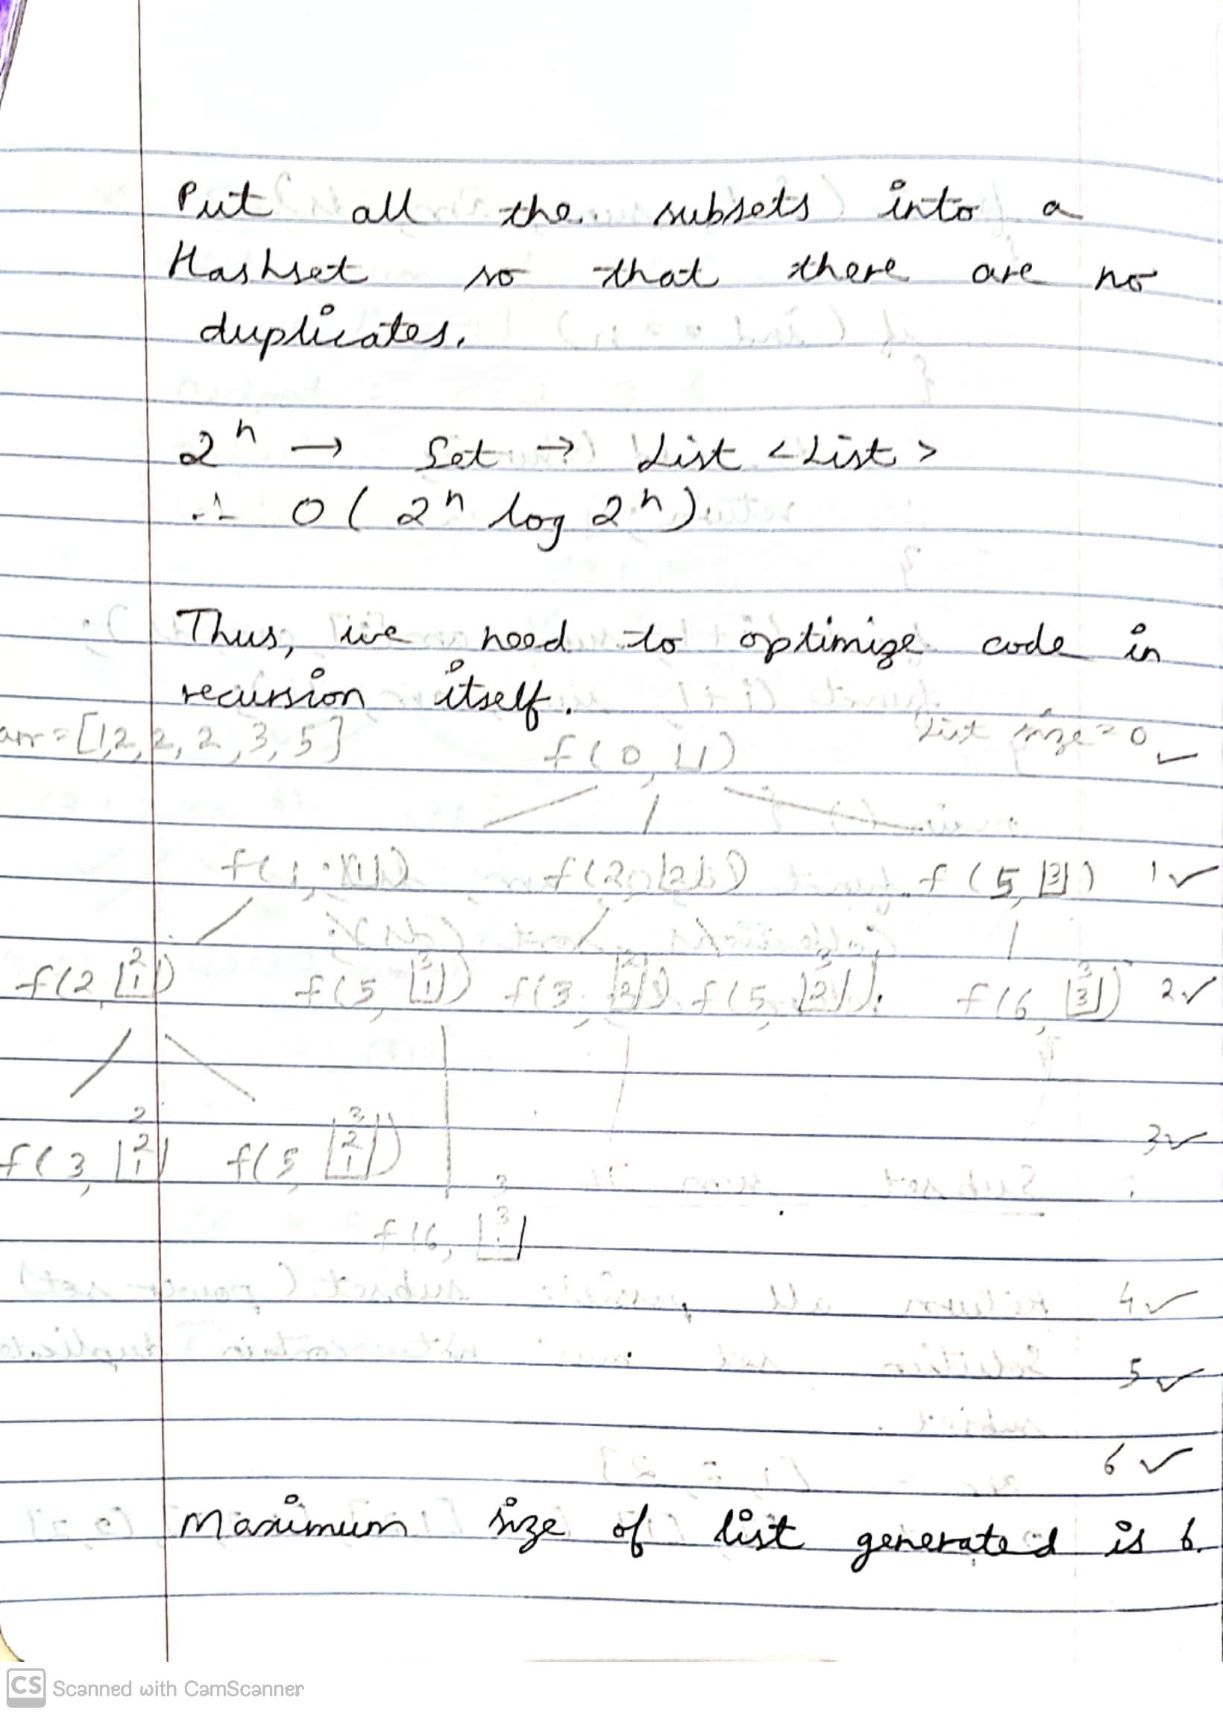 Put all the subsets into a
Hashset so that there are no
duplicates.
2^n → Set → List <List>
∴ O( 2^n log 2^n )
Thus, we need to optimize code in
recursion itself.
arr = [1,2,2,2,3,5]
f(0, ⊔)
list size = 0 ✓
f(1, |1|) f(2, |2|) f(5, |3|) 1 ✓
f(2, |2 1|) f(5, |3 1|) f(3, |2 2|) f(5, |3 2|) f(6, |3 3|) 2 ✓
f(3, |2 2 1|) f(5, |3 2 1|) 3 ✓
f(6,
4 ✓
5 ✓
6 ✓
Maximum size of list generated is 6.
CS Scanned with CamScanner